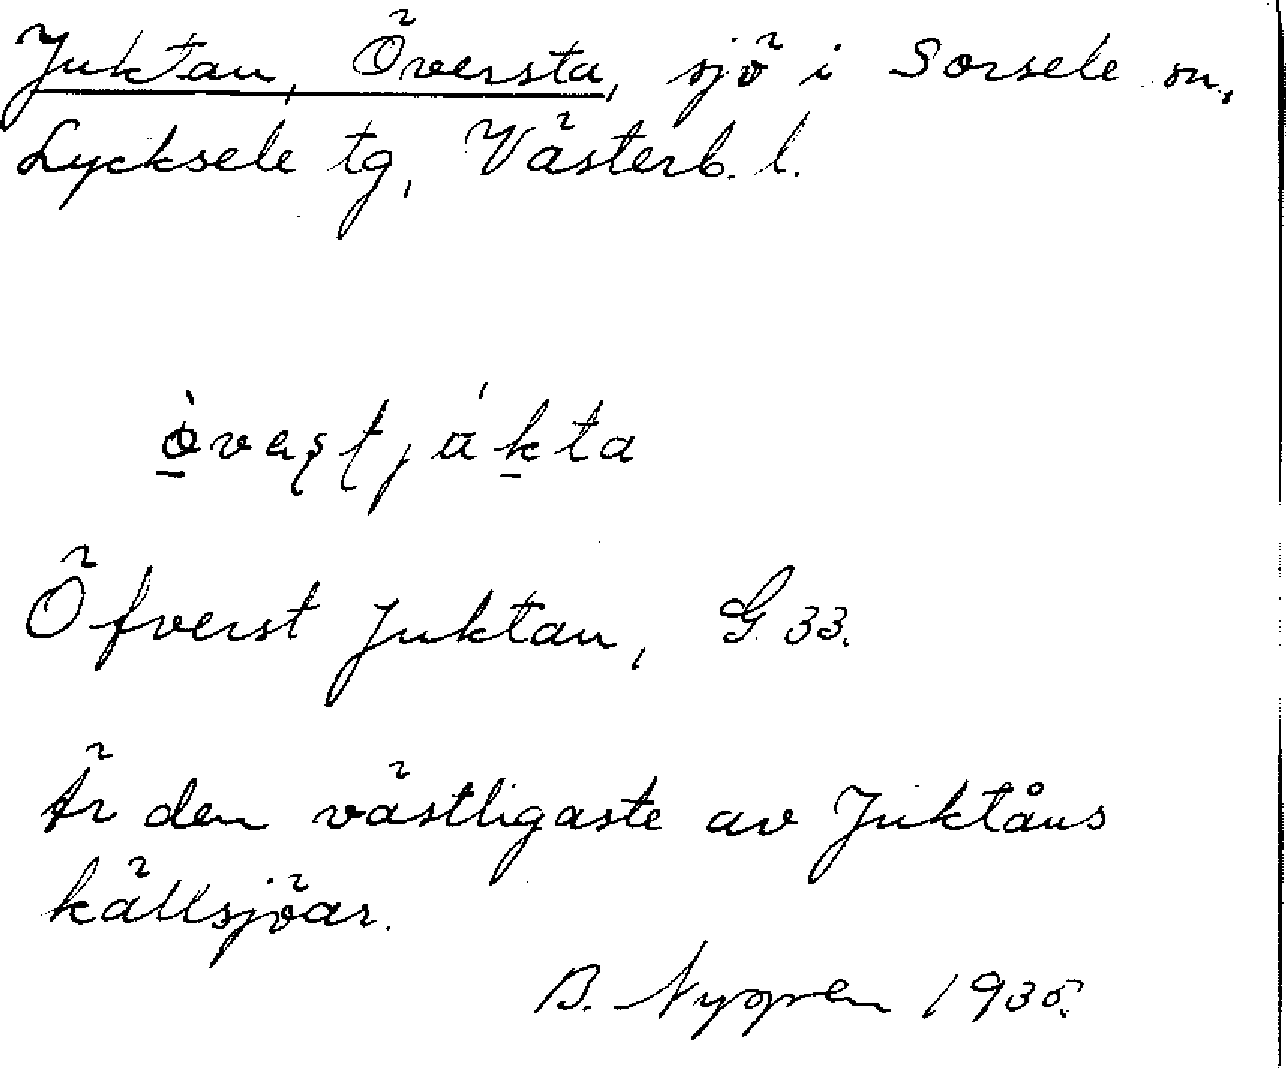 Juktan, Översta, sjö i Sorsele sn,
Lycksele tg, Västerb. l.
Öfverst Juktan, G 33.
Är den västligaste av Juktåns
källsjöar.
B. Nygren 1935.